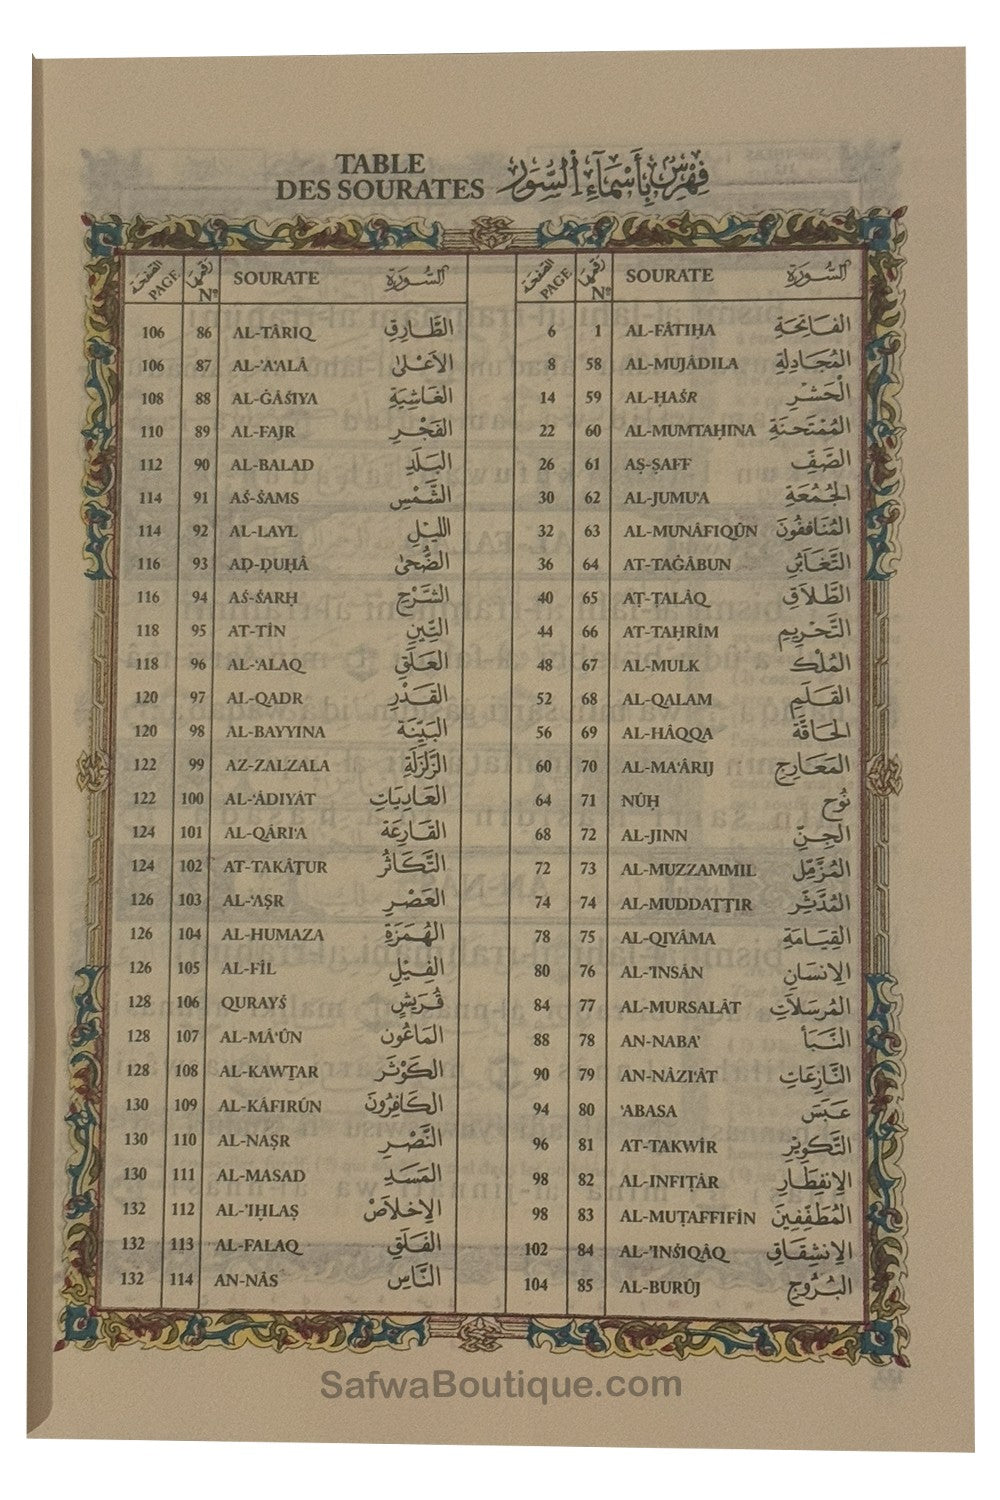 TABLE
DES SOURATES فِهْرِسٌ بِأَسْمَاءِ السُّوَرِ
الصفحة PAGE رقمها Nº SOURATE السُّورَة
6 1 AL-FÂTIḤA الفَاتِحَة
8 58 AL-MUJÂDILA المُجَادلة
14 59 AL-ḤAŚR الْحَشْر
22 60 AL-MUMTAḤINA المُمْتَحنَة
26 61 AṢ-ṢAFF الصَّفّ
30 62 AL-JUMU'A الجُمُعَة
32 63 AL-MUNÂFIQÛN المُنَافِقُون
36 64 AT-TAĠÂBUN التَّغَابُن
40 65 AṬ-ṬALÂQ الطَّلَاق
44 66 AT-TAḤRÎM التَّحْرِيم
48 67 AL-MULK المُلْك
52 68 AL-QALAM القَلَم
56 69 AL-HÂQQA الحَاقَّة
60 70 AL-MA'ÂRIJ المَعَارِج
64 71 NÛḤ نُوح
68 72 AL-JINN الجِنّ
72 73 AL-MUZZAMMIL المُزَّمِّل
74 74 AL-MUDDAṬṬIR المُدَّثِّر
78 75 AL-QIYÂMA القِيَامَة
80 76 AL-'INSÂN الإنسَان
84 77 AL-MURSALÂT المُرسَلَات
88 78 AN-NABA' النَّبَأ
90 79 AN-NÂZI'ÂT النَّازِعَات
94 80 'ABASA عَبَسَ
96 81 AT-TAKWÎR التَّكْوِيْر
98 82 AL-INFIṬÂR الإنفِطَار
98 83 AL-MUṬAFFIFÎN المُطَفِّفِينَ
102 84 AL-'INŚIQÂQ الإنشِقَاق
104 85 AL-BURÛJ البُرُوج
الصفحة PAGE رقمها Nº SOURATE السُّورَة
106 86 AL-TÂRIQ الطَّارِق
106 87 AL-'A'ALÂ الأَعْلَىٰ
108 88 AL-ĠÂŚIYA الغَاشِيَة
110 89 AL-FAJR الفَجْر
112 90 AL-BALAD البَلَد
114 91 AŚ-ŚAMS الشَّمْس
114 92 AL-LAYL الليْل
116 93 AḌ-ḌUḤÂ الضُّحَىٰ
116 94 AŚ-ŚARḤ الشَّرْح
118 95 AT-TÎN التِّين
118 96 AL-'ALAQ العَلَق
120 97 AL-QADR القَدْر
120 98 AL-BAYYINA البَيِّنَة
122 99 AZ-ZALZALA الزَّلزَلَة
122 100 AL-'ÂDIYÂT العَاديَات
124 101 AL-QÂRI'A القَارِعَة
124 102 AT-TAKÂṬUR التَّكَاثُر
126 103 AL-'AṢR العَصْر
126 104 AL-HUMAZA الهُمَزَة
126 105 AL-FÎL الفِيْل
128 106 QURAYŚ قُرَيش
128 107 AL-MÂ'ÛN المَاعُون
128 108 AL-KAWṬAR الكَوْثَر
130 109 AL-KÂFIRÛN الكَافِرُون
130 110 AL-NAṢR النَّصْر
130 111 AL-MASAD المَسَد
132 112 AL-'IḤLAṢ الإخلَاصْ
132 113 AL-FALAQ الفَلَق
132 114 AN-NÂS النَّاس
SafwaBoutique.com